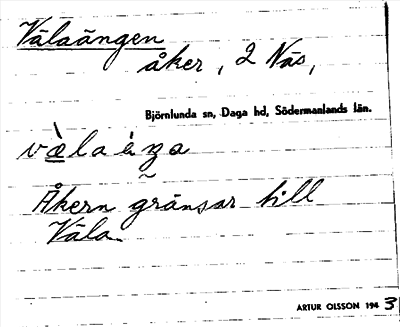 Välaängen
åker, 2 Näs,
Björnlunda sn, Daga hd, Södermanlands län.
Åkern gränsar till
Väla.
ARTUR OLSSON 1943